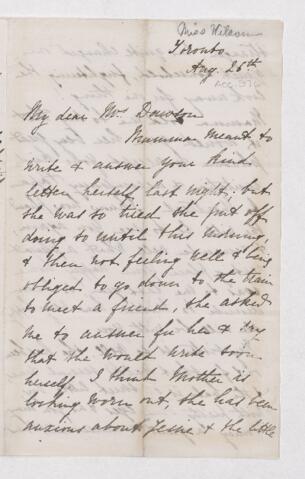 Miss Wilson
Toronto
Aug. 26th
My dear Mrs Dawson
Mamma meant to
write & answer your kind
letter herself last night; but
she was so tired she put off
doing so until this morning,
& then not feeling well & being
obliged to go down to the train
to meet a friend, she asked
me to answer for her & say
that she would write soon
herself. I think Mother is
looking worn out, she has been
anxious about Jessie & the little